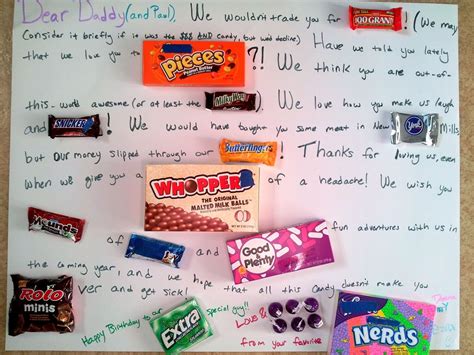 Dear Daddy (and Paul), We wouldn't trade you for 100 GRAND ! (We may
Consider it briefly if it was the $$$ AND candy, but we'd decline). Have we told you lately
that we love you to Pieces ?! We think you are out-of-
PEANUT BUTTER
this-world awesome (or at least the Milky Way We love how you make us laugh
and SNICKERS ! We would have bought you some meat in New York Mills
but our money slipped through our Butterfinger ! Thanks for loving us, even
when we give you a WHOPPER of a headache! We wish you
THE ORIGINAL
MALTED MILK BALLS
Mounds of and Good & Plenty fun adventures with us in
the coming year, and we hope that all this candy doesn't make you
ROLO ver and get sick!
minis
Happy Birthday to our Extra special guy!! Love &
from your favorite NeRds